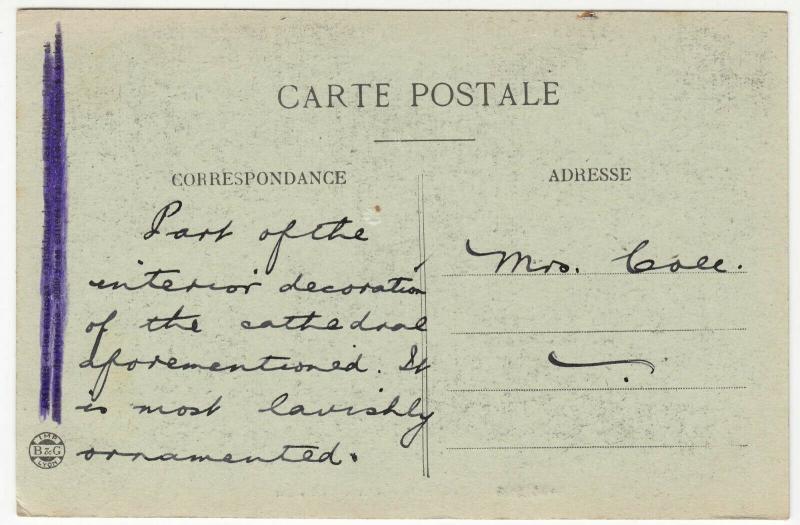 CARTE POSTALE
CORRESPONDANCE
ADRESSE
Part of the
interior decoration
of the cathedral
aforementioned. It
is most lavishly
ornamented.
Mrs. Cole.
IMP.
B&G
LYON